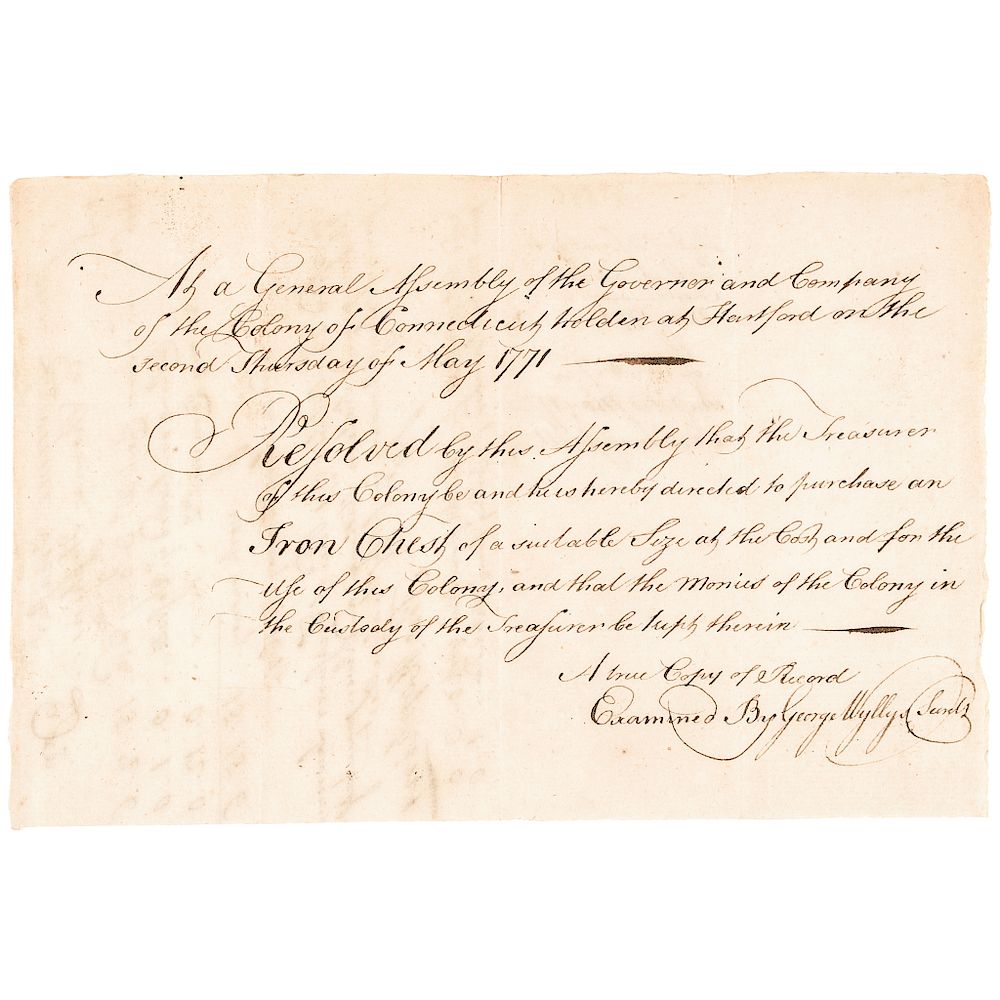 At a General Assembly of the Governor and Company
of the Colony of Connecticut holden at Hartford on the
second Thursday of May 1771
Resolved by this Assembly that the Treasurer
of this Colony be and he is hereby directed to purchase an
Iron Chest of a suitable Size at the Cost and for the
Use of this Colony, and that the Monies of the Colony in
the Custody of the Treasurer be kept therein
A true Copy of Record
Examined By George Wyllys Secret.